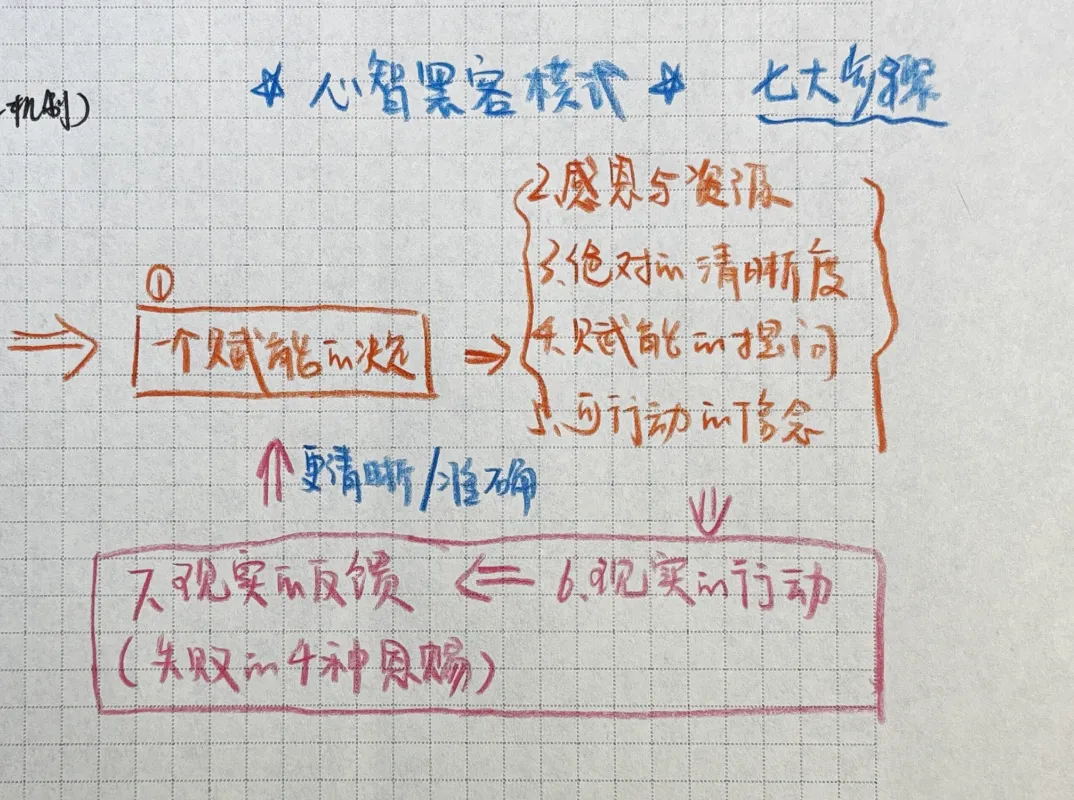 机制)
* 心智黑客模式 * 七大步骤
①
一个赋能的决定
2.感恩与资源
3.绝对的清晰度
4.赋能的提问
5.可行动的信念
更清晰/准确
6.现实的行动
7.现实的反馈
(失败的4种恩赐)